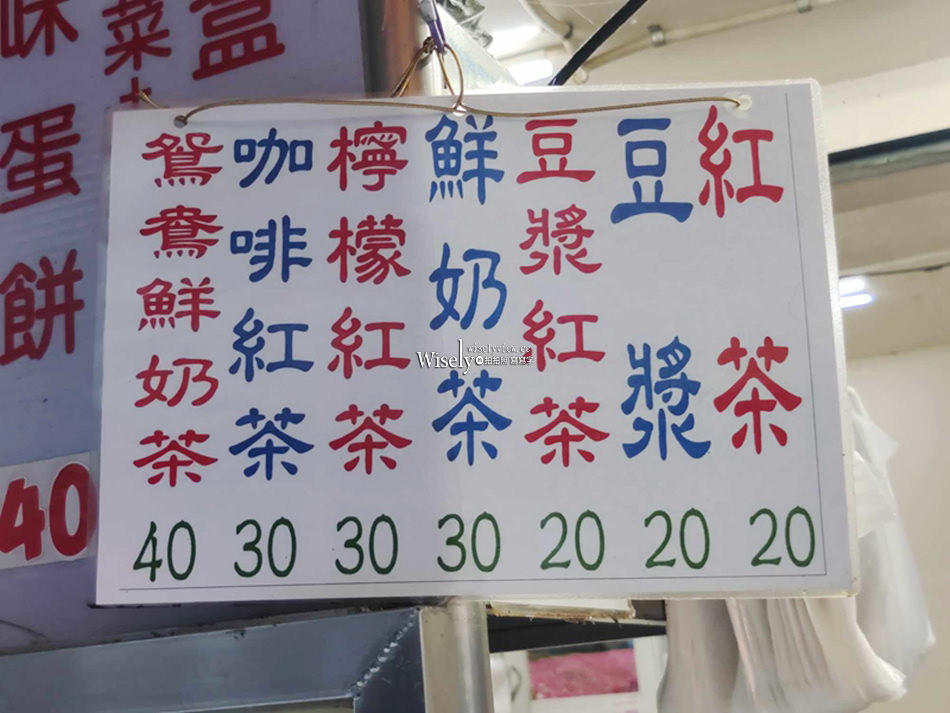 紅茶 20
豆漿 20
豆漿紅茶 20
鮮奶茶 30
檸檬紅茶 30
咖啡紅茶 30
鴛鴦鮮奶茶 40
盒
菜
味蛋餅 40
wiselyview.cc
Wisely 拍拍照寫寫字